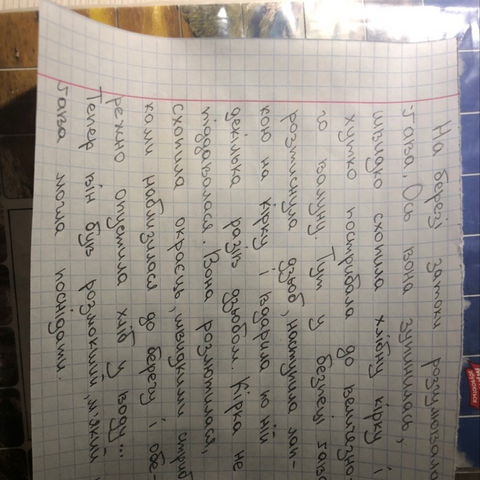 На березі затоки розгулювала
ґава. Ось вона зупинилась,
швидко схопила хлібну кірку і
хутко пострибала до велетезно-
го валуну. Тут у безпеці ґава
розтиснула дзьоб, наступила лап-
кою на кірку і вдарила по ній
декілька разів дзьобом. Кірка не
піддавалася. Вона розлютилася,
схопила окраєць, швидкими стриб
ками наблизилась до берегу і обе-
режно опустила хліб у воду...
Тепер він був розмокший, м'який і
ґава могла поснідати.